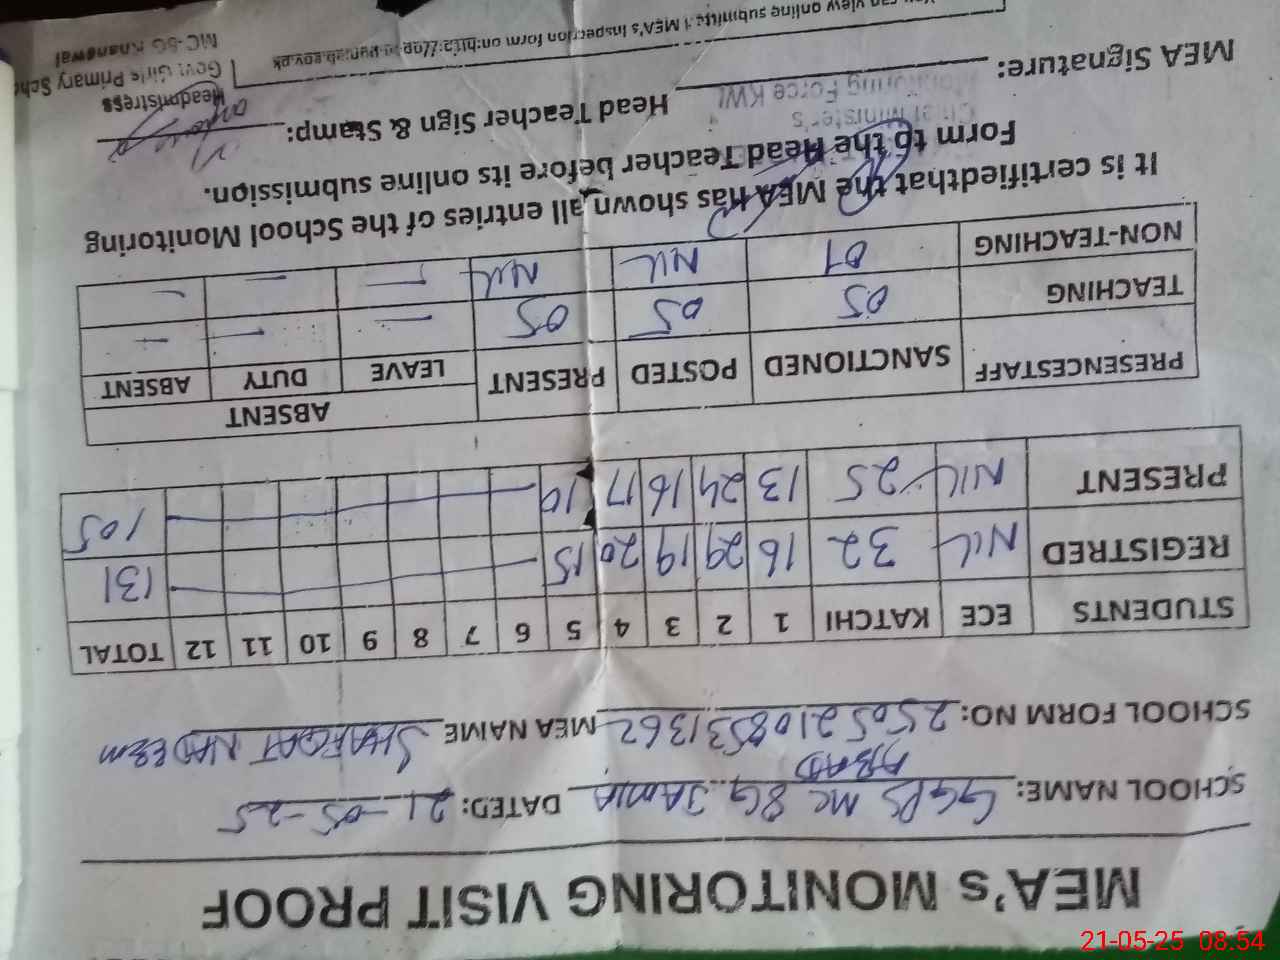 MEA's MONITORING VISIT PROOF
SCHOOL NAME: GGPS MC 8G JAMIA ABAD DATED: 21-05-25
SCHOOL FORM NO: 25052108531362 MEA NAME SHAFQAT NADEEM
STUDENTS ECE KATCHI 1 2 3 4 5 6 7 8 9 10 11 12 TOTAL
REGISTRED NIL 32 16 29 19 20 15 131
PRESENT NIL 25 13 24 16 17 10 105
PRESENCESTAFF SANCTIONED POSTED PRESENT ABSENT
LEAVE DUTY ABSENT
TEACHING 05 05 05 — — —
NON-TEACHING 01 NIL NIL — — —
It is certifiedthat the MEA has shown all entries of the School Monitoring
Form to the Head Teacher before its online submission.
Chief Minister's
Monitoring Force KWL
MEA Signature: Head Teacher Sign & Stamp:
Headmistress
Govt Girls Primary Scho
MC-8G Khanewal
can view online submitted MEA's Inspection form on:
21-05-25 08:54